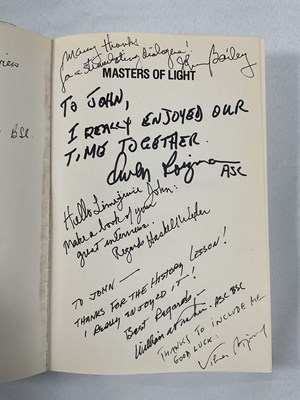 Many thanks
for a stimulating dialogue!
John Bailey
MASTERS OF LIGHT
TO JOHN,
I REALLY ENJOYED OUR
TIME TOGETHER.
Owen Roizman
ASC
Hello John:
Make a book of your
great interviews.
Regards Haskell Wexler
TO JOHN —
THANKS FOR THE HISTORY LESSON!
I REALLY ENJOYED IT—!
Best Regards—
William A. Fraker, ASC BSC
THANKS TO INCLUDE ME
GOOD LUCK.
BSC